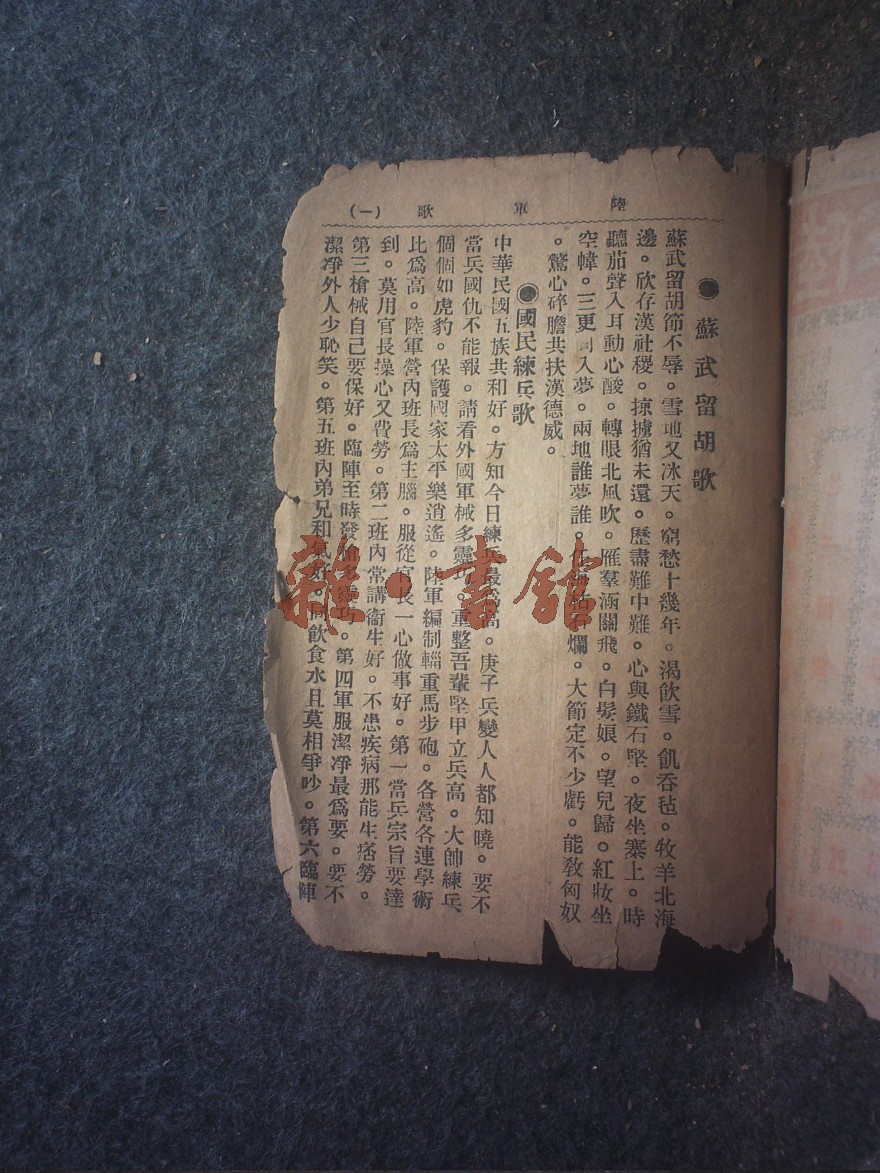 陸軍歌 (一)
●蘇武留胡歌
蘇武留胡節不辱。雪地又冰天。窮愁十幾年。渴飲雪。飢吞毡。牧羊北海
邊。欣存漢社稷。掠擄猶未還。歷盡難中難。心與鐵石堅。夜坐寨上。時
聽茄聲入耳動心酸。轉眼北風吹。雁羣涵關飛。白髮娘。望兒歸。紅妝坐
空幃。三更 入夢。兩地誰夢誰。 爛。大節定不少虧。能敎匈奴
。驚心碎膽共扶漢德威。
●國民練兵歌
中華民國五族共和好。方知今日練兵最爲高。庚子兵變人人都知曉。要不
當兵國仇不能報。請看外國軍械多靈巧。重整吾輩堅甲立兵高。大帥練兵
個個如虎豹。保護國家太平樂逍遙。陸軍編制輜重馬步砲。各營各連學術
比爲高。陸軍營內班長爲主腦。服從官長一心做事好。第一當兵宗旨要達
到。莫用官長操心又費勞。第二班內常講衞生好。不患疾病那能生痞勞。
第三槍械自己要保好。臨陣至時發槍 。第四軍服潔凈最爲要。要不
潔凈外人少恥笑。第五班內弟兄和氣 。 飲食水且莫相爭吵。第六臨陣
雜·書舘